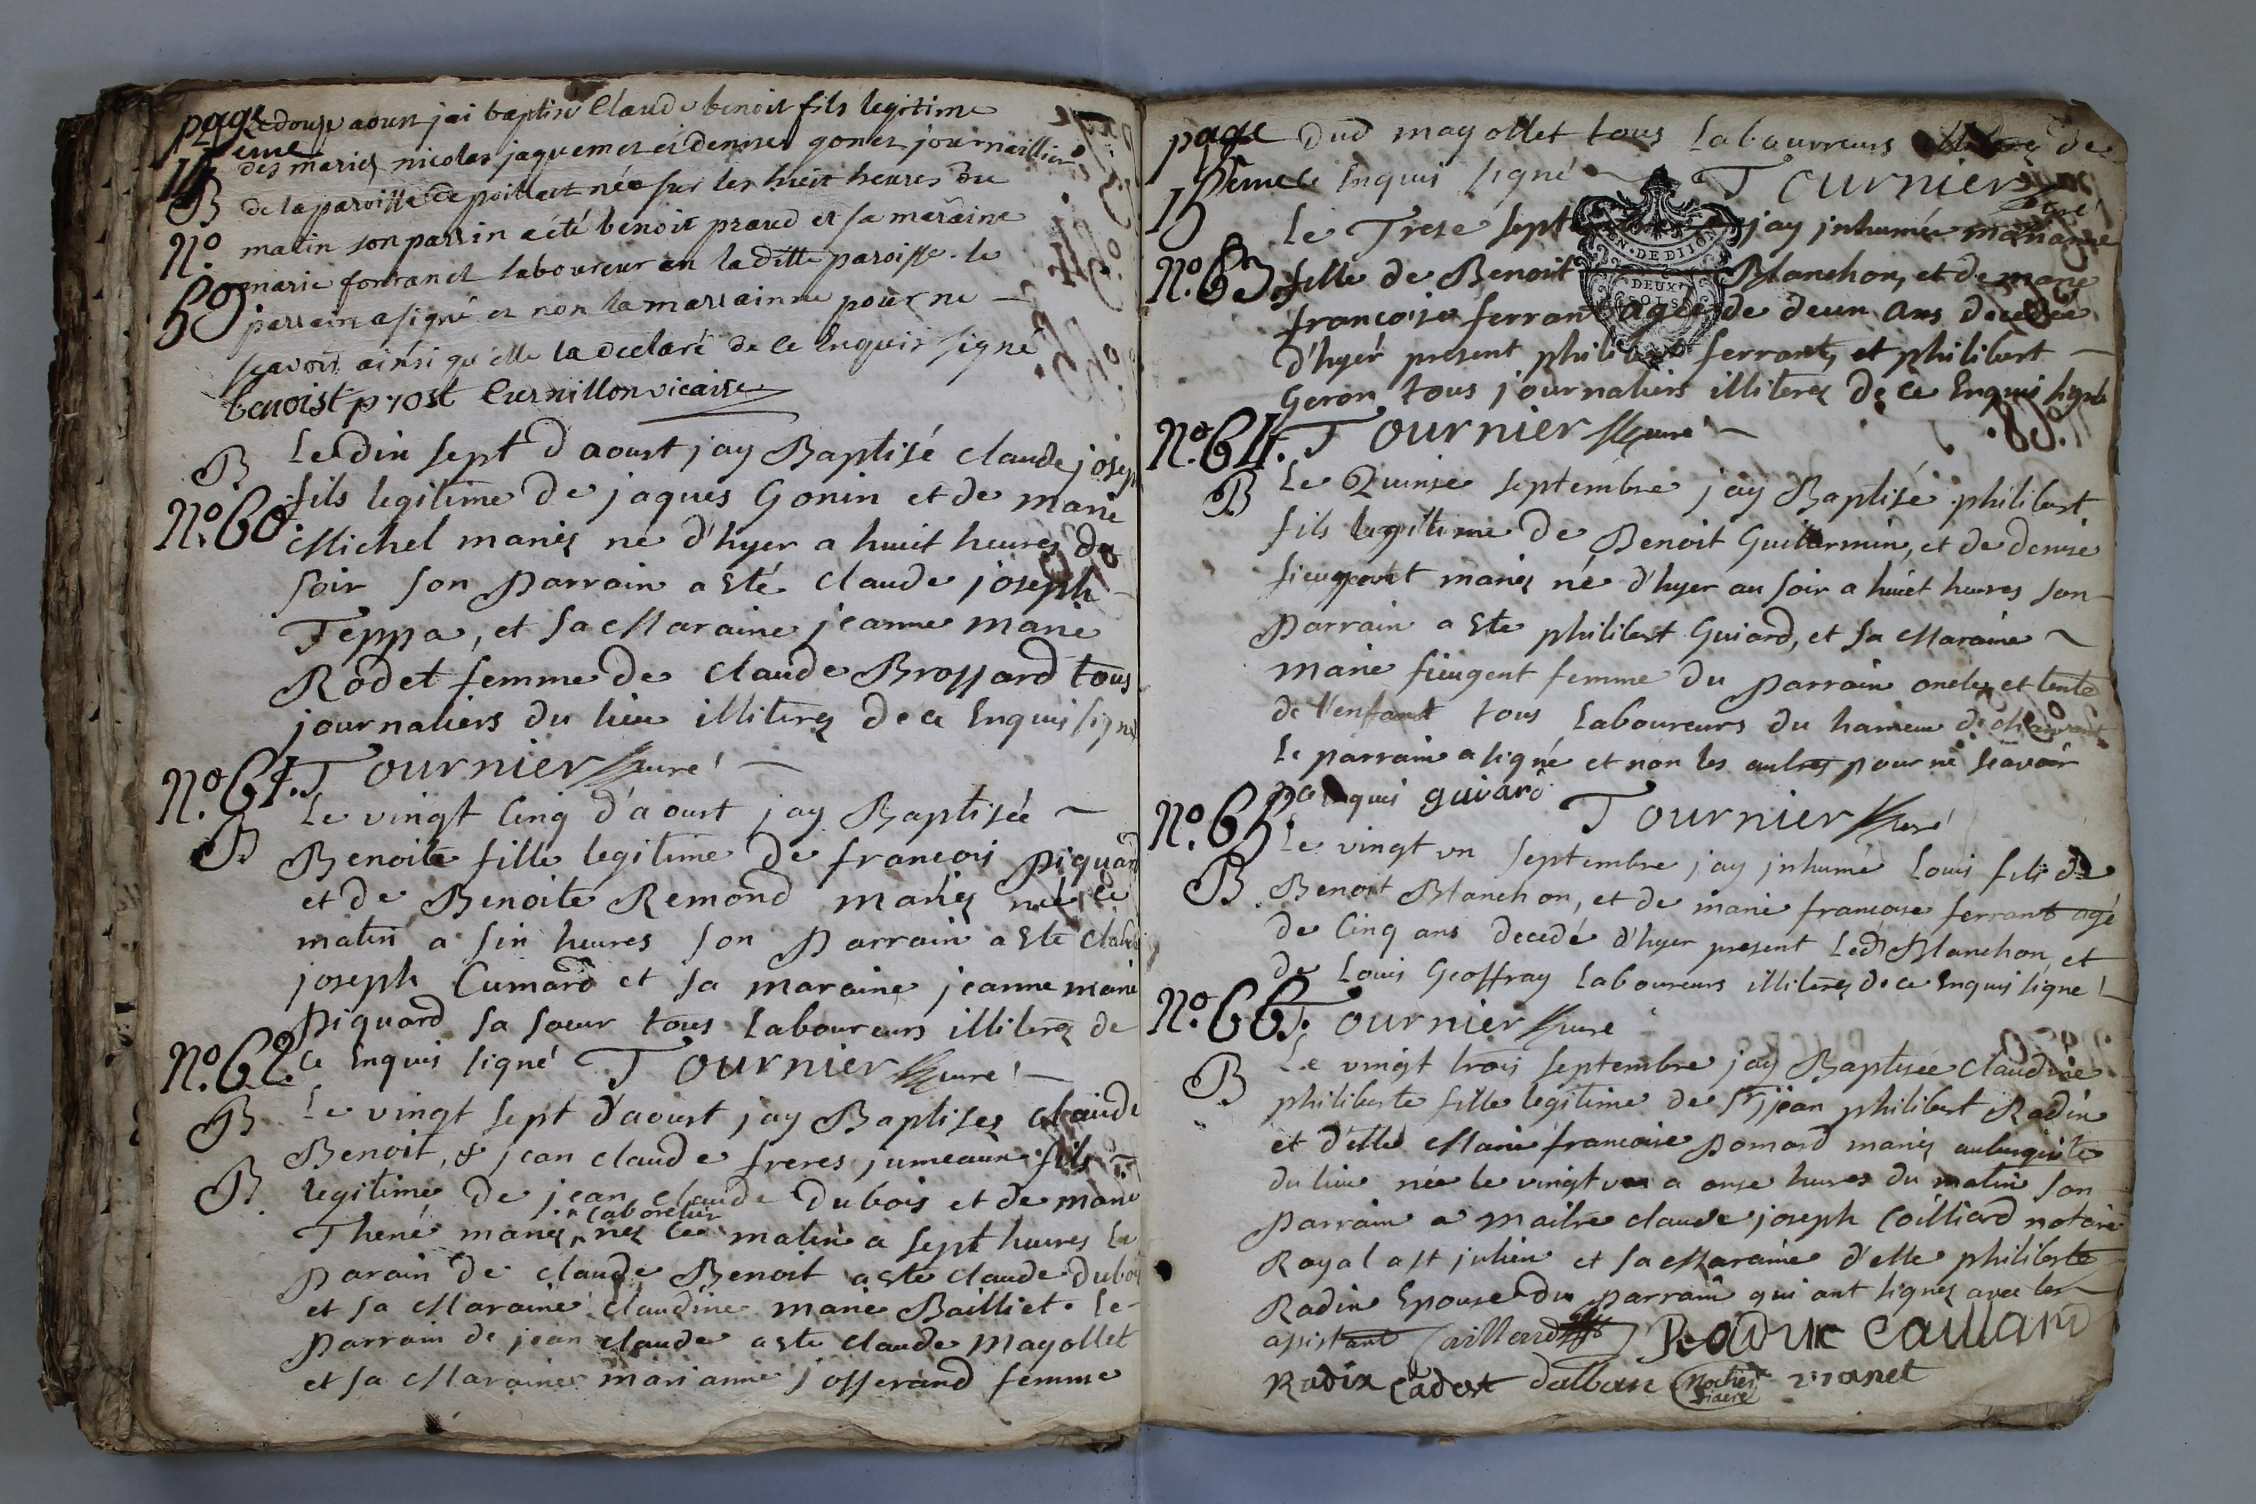 page
14 eme
B
No
59
Le douze aoust jai baptisé Claude benoit fils legitime
des mariez nicolas jaquemet et denise gonet journaillier
de la paroisse de poilliat née sur les huit heures du
matin son parrin a été benoit praud et sa maraine
marie fontanel laboureur en la ditte paroisse. le
parrain a signé et non la marrainne pour ne
scavoir ainsi qu'elle la declaré de ce Enquis signé
benoist prost Curnillon vicaire
B
No. 60.
Le dix sept d'aoust jay Baptisé claude joseph
fils legitime de jaques Gonin et de marie
Michel mariez né d'hyer a huit heures du
soir son Parrain a Esté claude joseph
Teppa, et sa Maraine jeanne marie
Rodet femme de claude Brossard tous
journaliers du lieu illiterez de ce Enquis signé
Tournier curé
No. 61.
B
Le vingt Cinq d'aoust jay Baptisée
Benoite fille legitime de francois Piquard
et de Benoite Remond mariez née ce
matin a six heures son Parrain a Esté claude
joseph Cumard et sa maraine jeanne marie
Piquard sa soeur tous Laboureurs illiterez de
ce Enquis signé Tournier curé
No. 62.
B
B
Le vingt sept d'aoust jay Baptisez claude
Benoit, & jean claude freres jumeaux fils
legitime de jean claude Dubois et de marie
Thené mariez, laboureur nez ce matin a sept heures Le
Parain de claude Benoit a esté claude dubois
et sa Maraine claudine marie Bailliet. Le
Parrain de jean claude a esté claude Mayollet
et sa Maraine marianne josserand femme
page
15 eme
Dud mayollet tous Laboureurs illiterez de
ce Enquis signé Tournier curé
No. 63.
Le Treze septembre jay jnhumée marianne
fille de Benoit Blanchon, et de marie
francoise ferrand agée de deux ans decedée
d'hyer present philibert ferrand, et philibert
Geron tous journaliers illiterez de ce Enquis signé
No. 64. Tournier curé
B
Le Quinze septembre jay Baptisé philibert
fils legitime de Benoit Guillermin, et de denise
fieugent mariez né d'hyer au soir a huit heures son
Parrain a Esté philibert Guiard, et sa Maraine
marie fieugent femme du Parrain oncle et tente
de l'enfant tous Laboureurs du hameau de
Le parrain a signé et non les autres pour ne scavoir
de ce enquis guiard Tournier curé
No. 65.
B
Le vingt un septembre jay jnhumé Louis fils de
Benoit Blanchon, et de marie francoise ferrand agé
de Cinq ans decedé d'hyer present Led Blanchon, et
de Louis Geoffray Laboureurs illiterez de ce Enquis signé
No. 66. Tournier curé
B
Le vingt trois septembre jay Baptisée claudine
philiberte fille legitime de Sr jean philibert Radix
et d'elle Marie francoise Pomard mariez aubergiste
du lieu née le vingt un a onze heures du matin son
Parrain a maitre claude joseph Coilliard notaire
Royal a st julien et sa Maraine d'elle philiberte
Radix Epouse du Parrain qui ont signez avec les
asistant Caillard Radix Caillard
Radix Cadost dalban
EN. DE DIJON
DEUX
SOLS